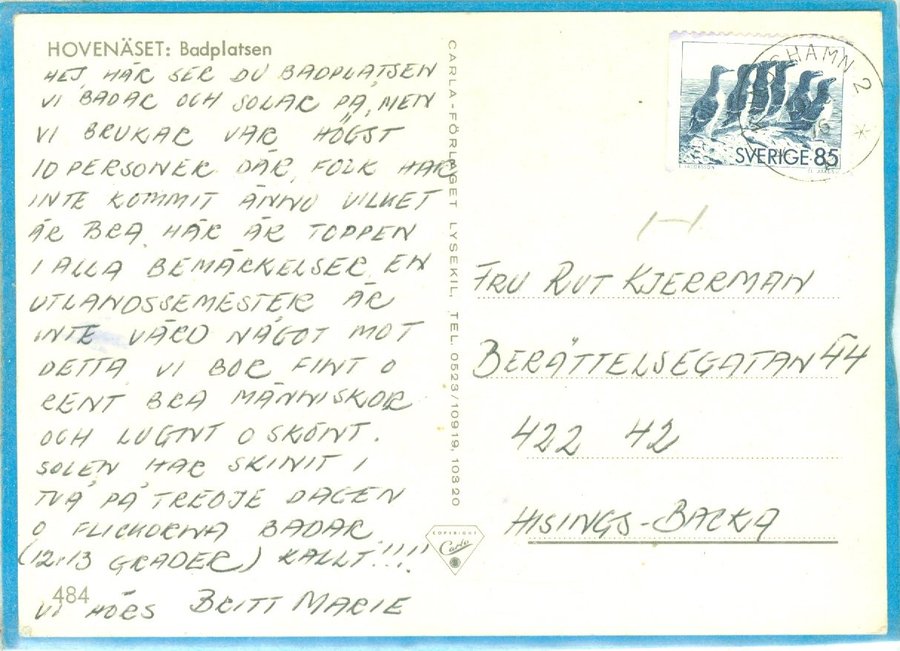 HOVENÄSET: Badplatsen
HEJ HÄR SER DU BADPLATSEN
VI BADAR OCH SOLAR PÅ, MEN
VI BRUKAR VAR HÖGST
10 PERSONER DÄR, FOLK HAR
INTE KOMMIT ÄNNU VILKET
ÄR BRA. HÄR ÄR TOPPEN
I ALLA BEMÄRKELSER. EN
UTLANDSSEMESTER ÄR
INTE VÄRD NÅGOT MOT
DETTA. VI BOR FINT O
RENT BRA MÄNNISKOR
OCH LUGNT O SKÖNT.
SOLEN HAR SKINIT I
TVÅ PÅ TREDJE DAGEN
O FLICKORNA BADAR
(12-13 GRADER) KALLT!!!!
484
VI HÖRS BRITT MARIE
CARLA-FÖRLAGET LYSEKIL, TEL. 0523/10919, 10320
COPYRIGHT
Carla
SVERIGE 85
HAMN 2
FRU RUT KJERRMAN
BERÄTTELSEGATAN 44
422 42
HISINGS-BACKA